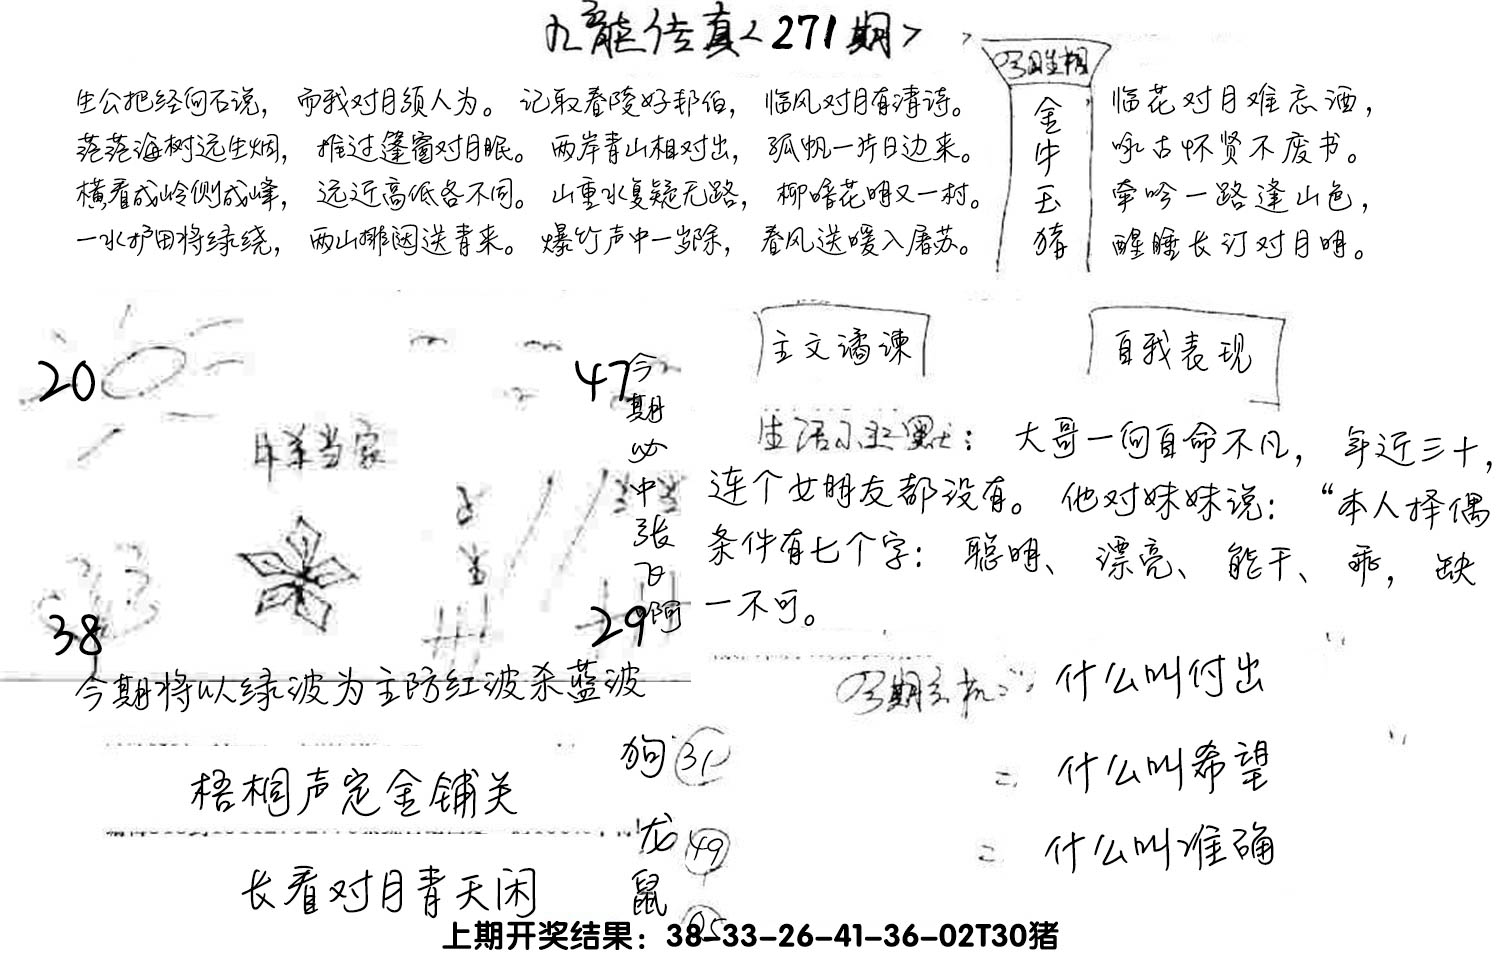 九龙传真<271期>
生公把经向石说，而我对月须人为。记取春陵好邦伯，临风对月有清诗。
茫茫海树远生烟，推过篷窗对月眠。两岸青山相对出，孤帆一片日边来。
横看成岭侧成峰，远近高低各不同。山重水复疑无路，柳暗花明又一村。
一水护田将绿绕，两山排闼送青来。爆竹声中一岁除，春风送暖入屠苏。
金牛玉猪
临花对月难忘酒，
咏古怀贤不废书。
牵吟一路逢山色，
醒睡长汀对月明。
20
47
今期必中张飞啊
38
29
今期将以绿波为主防红波杀蓝波
主文谲谏
自我表现
生活小幽默：大哥一向自命不凡，年近三十，
连个女朋友都没有。他对妹妹说：“本人择偶
条件有七个字：聪明、漂亮、能干、乖，缺
一不可。
今期玄机：什么叫付出
什么叫希望
什么叫准确
梧桐声定金铺关
长看对月青天闲
狗 31
龙 49
鼠 05
上期开奖结果：38-33-26-41-36-02T30猪